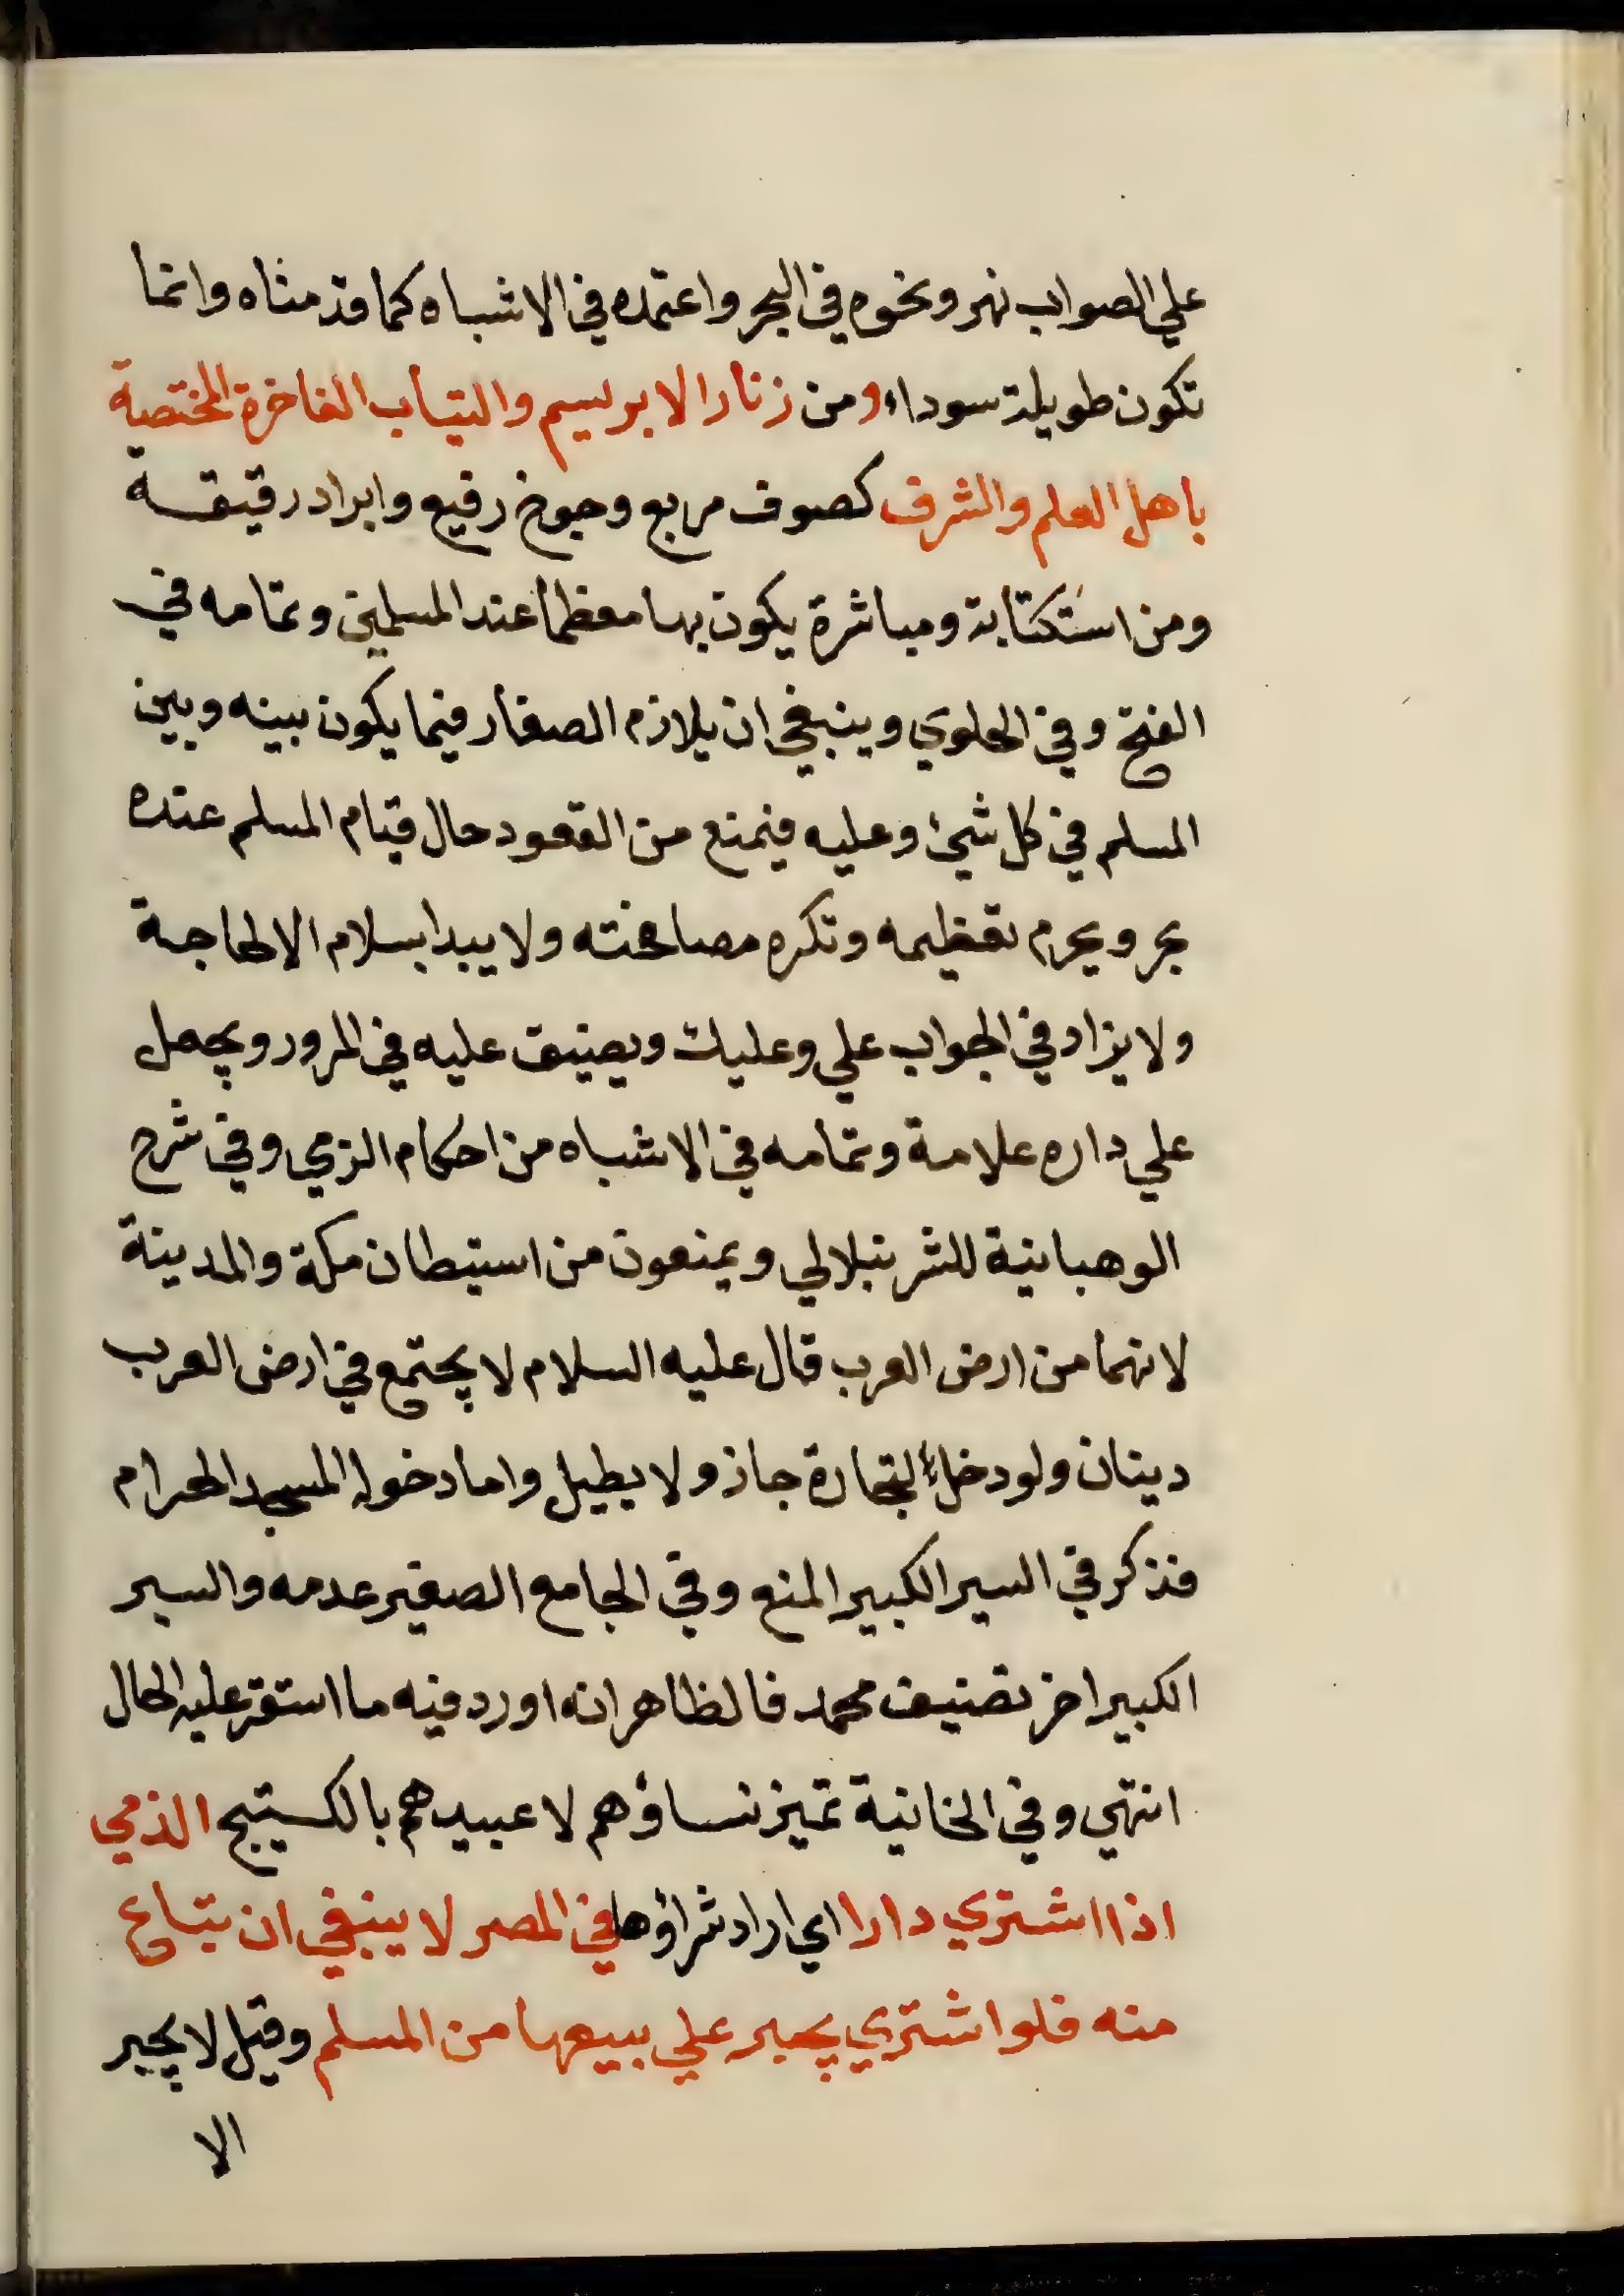 علي الصواب نهر ونحوه في البحر واعتمده في الاشباه كما قدمناه وانما
تكون طويلة سوداء ومن زنار الابريسم والثياب الفاخرة المختصة
باهل العلم والشرف كصوف مربع وجوخ رفيع وابراد رقيقة
ومن استكتابة ومباشرة يكون بها معظما عند المسلمين وتمامه في
الفتح وفي الحاوي وينبغي ان يلازم الصغار فيما يكون بينه وبين
المسلم في كل شيء وعليه فيمنع من القعود حال قيام المسلم عنده
بحر ويحرم تعظيمه وتكره مصافحته ولا يبدا بسلام الا لحاجة
ولا يزاد في الجواب علي وعليك ويضيق عليه في المرور ويجعل
علي داره علامة وتمامه في الاشباه من احكام الذمي وفي شرح
الوهبانية للشرنبلالي ويمنعون من استيطان مكة والمدينة
لانهما من ارض العرب قال عليه السلام لا يجتمع في ارض العرب
دينان ولو دخل لتجارة جاز ولا يطيل واما دخوله المسجد الحرام
فذكر في السير الكبير المنع وفي الجامع الصغير عدمه والسير
الكبير اخر تصنيف محمد فالظاهر انه اورد فيه ما استقر عليه الحال
انتهي وفي الخانية تميز نساؤهم لا عبيدهم بالكستيج الذمي
اذا اشتري دارا اي اراد شراؤها في المصر لا ينبغي ان تباع
منه فلو اشتري يجبر علي بيعها من المسلم وقيل لا يجبر
الا